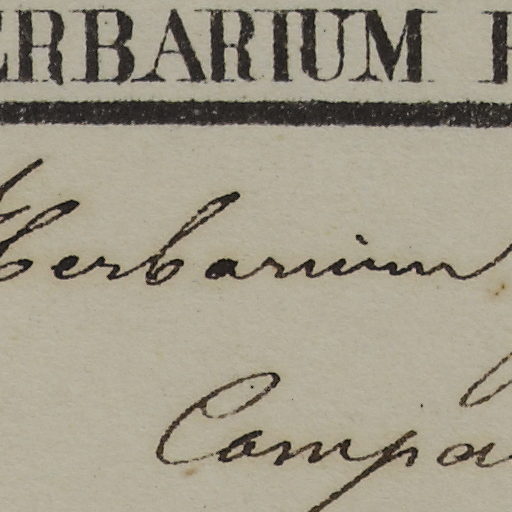 ERBARIUM
Herbarium
Compa